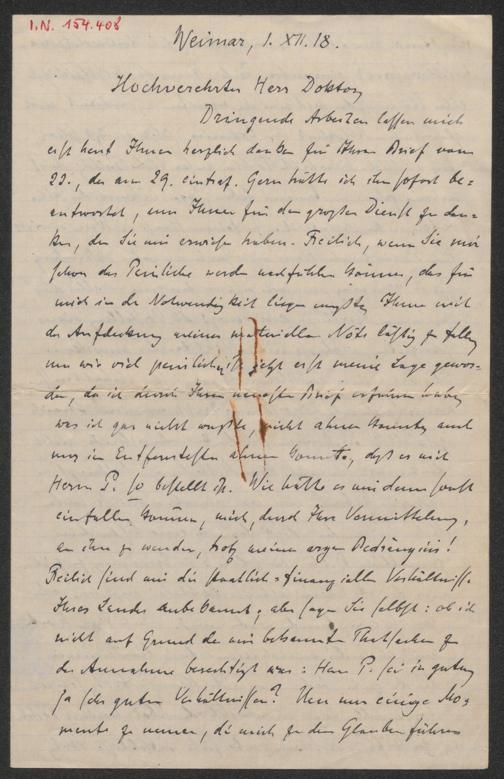 I.N. 154.408
Weimar, 1. XII. 18.
Hochverehrter Herr Doktor,
Dringende Arbeiten lassen mich
erst heut Ihnen herzlich danken für Ihren Brief vom
22., der am 29. eintraf. Gern hätte ich ihn sofort be-
antwortet, um Ihnen für den großen Dienst zu dan-
ken, den Sie mir erwiesen haben. Freilich, wenn Sie mir
schon das Peinliche werden nachfühlen können, das für
mich in der Notwendigkeit liegen mußte, Ihnen mit
der Aufdeckung meiner materiellen Nöte lästig zu fallen,
um wie viel peinlicher ist jetzt erst meine Lage gewor-
den, da ich durch Ihren neuesten Brief erfahren habe,
was ich gar nicht wußte, nicht ahnen konnte, auch
nur im Entferntesten ahnen konnte, daß es mit
Herrn P. so bestellt ist. Wie hätte es mir denn sonst
einfallen können, mich, durch Ihre Vermittelung,
an ihn zu wenden, trotz meiner argen Bedrängnis!
Freilich sind mir die staatlich-finanziellen Verhältnisse
Ihres Landes unbekannt; aber sagen Sie selbst: ob ich
nicht auf Grund der mir bekannten Thatsachen zu
der Annahme berechtigt war: Herr P. sei in guten,
ja sehr guten Verhältnissen? Um nur einige Mo-
mente zu nennen, die mich zu dem Glauben führen